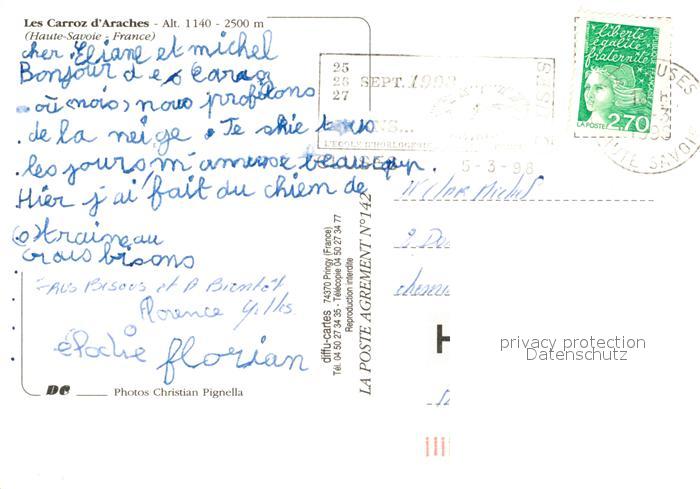 Les Carroz d'Araches - Alt. 1140 - 2500 m
(Haute-Savoie - France)
cher Eliane et michel
Bonjour des Caroz
où mois, nous profitons
de la neige. Je skie tous
les jours, m'amuse beaucoup.
Hier j'ai fait du chiem de
traineau
Grois bisons
Bisous et A Bientôt
Florence Gilles
élodie florian
DC Photos Christian Pignella
diffu-cartes 74370 Pringy (France)
Tél. 04 50 27 34 35 - Télécopie 04 50 27 34 77
Reproduction interdite
LA POSTE AGREMENT N°142
25
26 SEPT. 1998
27
L'ECOLE D'HORLOGERIE
5-3-98
liberté
égalité
fraternité
LA POSTE 2,70
HAUTE SAVOIE
Michel
2
H
privacy protection
Datenschutz